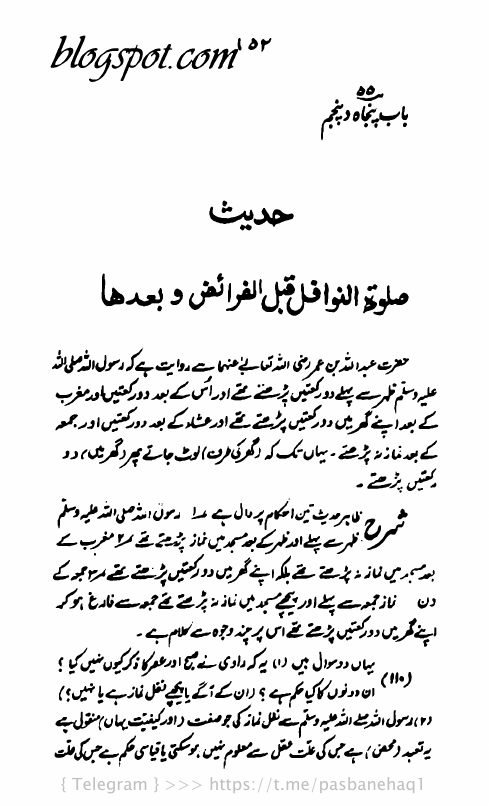 blogspot.com ۱۵۲
۵۵
باب پنجاہ و پنجم
حدیث
صلوۃ النوافل قبل الفرائض و بعدھا
حضرت عبداللہ بن عمر رضی اللہ تعالیٰ عنہما سے روایت ہے کہ رسول اللہ صلی اللہ
علیہ وسلم ظہر سے پہلے دو رکعتیں پڑھتے تھے اور اُس کے بعد دو رکعتیں اور مغرب
کے بعد اپنے گھر میں دو رکعتیں پڑھتے تھے اور عشاء کے بعد دو رکعتیں اور جمعہ
کے بعد نماز نہ پڑھتے۔ یہاں تک کہ (گھر کی طرف) لوٹ جاتے پھر (گھر میں) دو
رکعتیں پڑھتے۔
شرح ظاہر حدیث تین احکام پر دال ہے ۱ رسول اللہ صلی اللہ علیہ وسلم
ظہر سے پہلے اور ظہر کے بعد مسجد میں نماز پڑھتے تھے ۲ مغرب کے
بعد مسجد میں نماز نہ پڑھتے تھے بلکہ اپنے گھر میں دو رکعتیں پڑھتے تھے ۳ جمعہ کے
دن نماز جمعہ سے پہلے اور پیچھے مسجد میں نماز نہ پڑھتے تھے جمعہ سے فارغ ہو کر
اپنے گھر میں دو رکعتیں پڑھتے تھے اس پر چند وجوہ سے کلام ہے۔
یہاں دو سوال ہیں (۱) یہ کہ راوی نے صبح اور عصر کا ذکر کیوں نہیں کیا؟
(۱۱۰) ان دونوں کا کیا حکم ہے؟ (ان کے آگے یا پیچھے نفل نماز ہے یا نہیں؟)
(۲) رسول اللہ صلے اللہ علیہ وسلم سے نفل نماز کی جو صفت (اور کیفیت یہاں) منقول ہے
یہ تعبد (محض) ہے جس کی علت عقل سے معلوم نہیں ہو سکتی یا قیاسی حکم ہے جس کی علت
{ Telegram } >>> https://t.me/pasbanehaq1